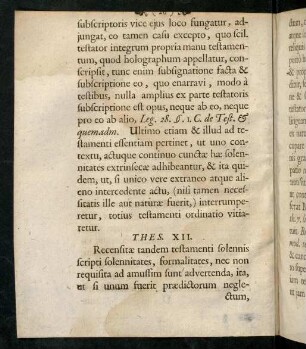 subscriptoris vice ejus loco fungatur, ad-
jungat, eo tamen casu excepto, quo scil.
testator integrum propria manu testamen-
tum, quod holographum appellatur, con-
scripsit, tunc enim subsignatione facta &
subscriptione eo, quo enarravi, modo à
testibus, nulla amplius ex parte testatoris
subscriptione est opus, neque ab eo, neque
pro eo ab alio, Leg. 28. §. 1. C. de Test. &
quemadm. Ultimo etiam & illud ad te-
stamenti essentiam pertinet, ut uno con-
textu, actuque continuo cunctæ hæ solen-
nitates extrinsecæ adhibeantur, & ita qui-
dem, ut, si unico vere extraneo atque ali-
eno intercedente actu, (nili tamen neces-
sitatis ille aut naturæ fuerit,) interrumpe-
retur, totius testamenti ordinatio vitia-
retur.
THES. XII.
Recensitæ tandem testamenti solennis
scripti solennitates, formalitates, nec non
requisita ad amussim sunt advertenda, ita,
ut si unum fuerit prædictorum negle-
ctum,